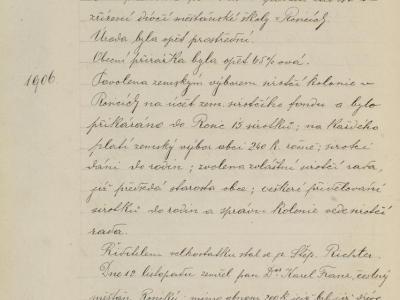 zřízení dívčí měšťanské školy v Ronově.
Úroda byla opět prostřední.
Obecní přirážka byla opět 65% ová.
1906.
Povolena zemským výborem sirotčí kolonie v
na účet zem. sirotčího fondu a bylo
přikázáno do Ronc 13 sirotků; na každého
platí zemský výbor obci 240 K. ročně; sirotci
dáni do rodin; zvolena zvláštní sirotčí rada,
jíž předsedá starosta obce; veškeré přidělování
sirotků do rodin a správu kolonie vede sirotčí
rada.
Ředitelem velkostatku stal se p. Štěp. Richter.
Dne 12. listopadu zemřel pan Dr. Karel Franz, čestný
měšťan